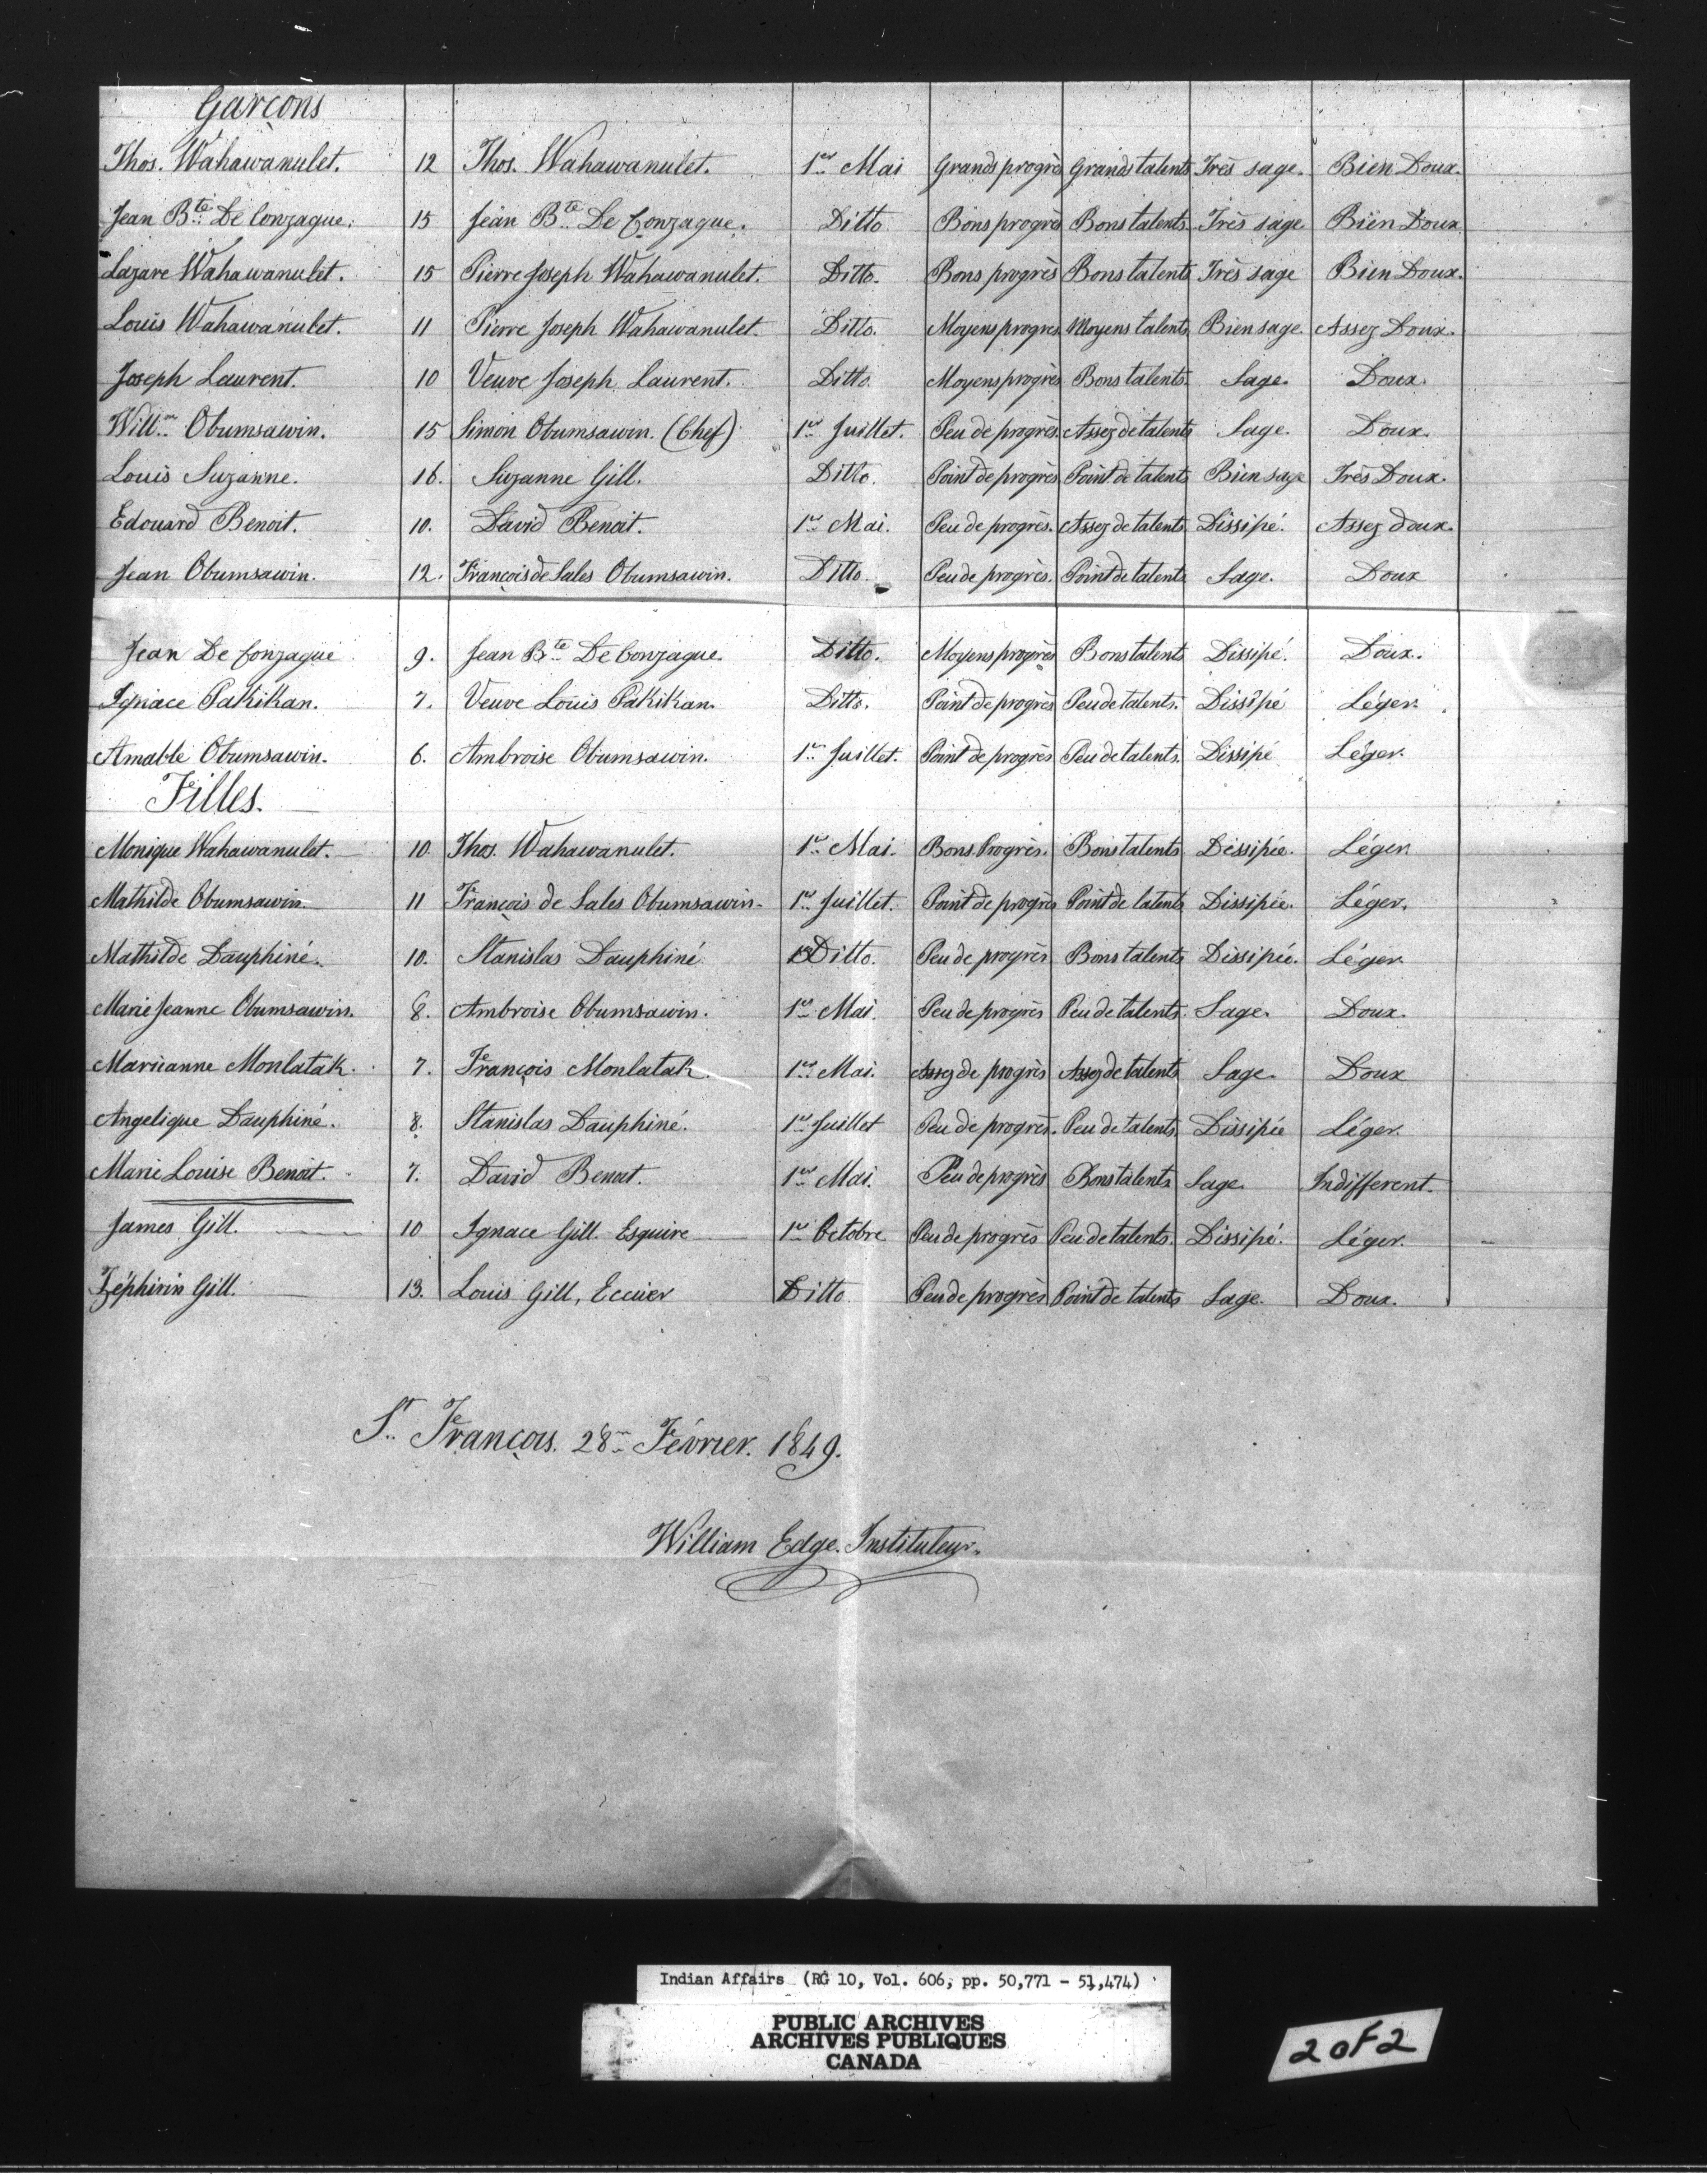 Garçons
Thos. Wahawanulet. 12 Thos. Wahawanulet. 1er Mai Grands progrès Grands talents Très sage. Bien Doux.
Jean Bte De Gonzague. 15 Jean Bte De Gonzague. Ditto Bons progrès Bons talents Très sage Bien Doux
Lazare Wahawanulet. 15 Pierre Joseph Wahawanulet. Ditto. Bons progrès Bons talents Très sage Bien Doux.
Louis Wahawanulet. 11 Pierre Joseph Wahawanulet. Ditto. Moyens progrès Moyens talents Bien sage Assez Doux.
Joseph Laurent. 10 Veuve Joseph Laurent. Ditto. Moyens progrès Bons talents Sage. Doux.
Willm Obumsawin. 15 Simon Obumsawin. (Chef) 1er Juillet. Peu de progrès Assez de talents Sage. Doux.
Louis Suzanne. 16. Suzanne Gill. Ditto. Point de progrès Point de talents Bien sage Très Doux.
Edouard Benoit. 10. David Benoit. 1er Mai. Peu de progrès. Assez de talents Dissipé. Assez doux.
Jean Obumsawin. 12. François de Sales Obumsawin. Ditto. Peu de progrès. Point de talents Sage. Doux
Jean De Gonzague 9. Jean Bte De Gonzague. Ditto. Moyens progrès Bons talents Dissipé. Doux.
Ignace Pakikan. 7. Veuve Louis Pakikan. Ditto. Point de progrès Peu de talents. Dissipé Léger.
Amable Obumsawin. 6. Ambroise Obumsawin. 1er Juillet. Point de progrès Peu de talents. Dissipé Léger.
Filles.
Monique Wahawanulet. 10 Thos. Wahawanulet. 1er Mai. Bons Progrès. Bons talents Dissipée. Léger.
Mathilde Obumsawin. 11 François de Sales Obumsawin. 1er Juillet. Point de progrès Point de talents Dissipée. Léger.
Mathilde Dauphiné. 10. Stanislas Dauphiné. Ditto. Peu de progrès Bons talents Dissipée. Léger.
Marie Jeanne Obumsawin. 8. Ambroise Obumsawin. 1er Mai. Peu de progrès Peu de talents. Sage. Doux.
Marianne Monlatak. 7. François Monlatak. 1er Mai. Assez de progrès Assez de talents Sage. Doux
Angelique Dauphiné. 8. Stanislas Dauphiné. 1er Juillet Peu de progrès. Peu de talents Dissipée Léger.
Marie Louise Benoit. 7. David Benoit. 1er Mai. Peu de progrès Bons talents Sage Indifferent.
James Gill. 10 Ignace Gill. Esquire 1er Octobre Peu de progrès Peu de talents. Dissipé. Léger.
Zéphirin Gill. 13. Louis Gill, Ecuier Ditto Peu de progrès Point de talents Sage. Doux.
St. François. 28me Février. 1849.
William Edge. Instituteur.
Indian Affairs (RG 10, Vol. 606, pp. 50,771 - 51,474)
PUBLIC ARCHIVES
ARCHIVES PUBLIQUES
CANADA
2 of 2